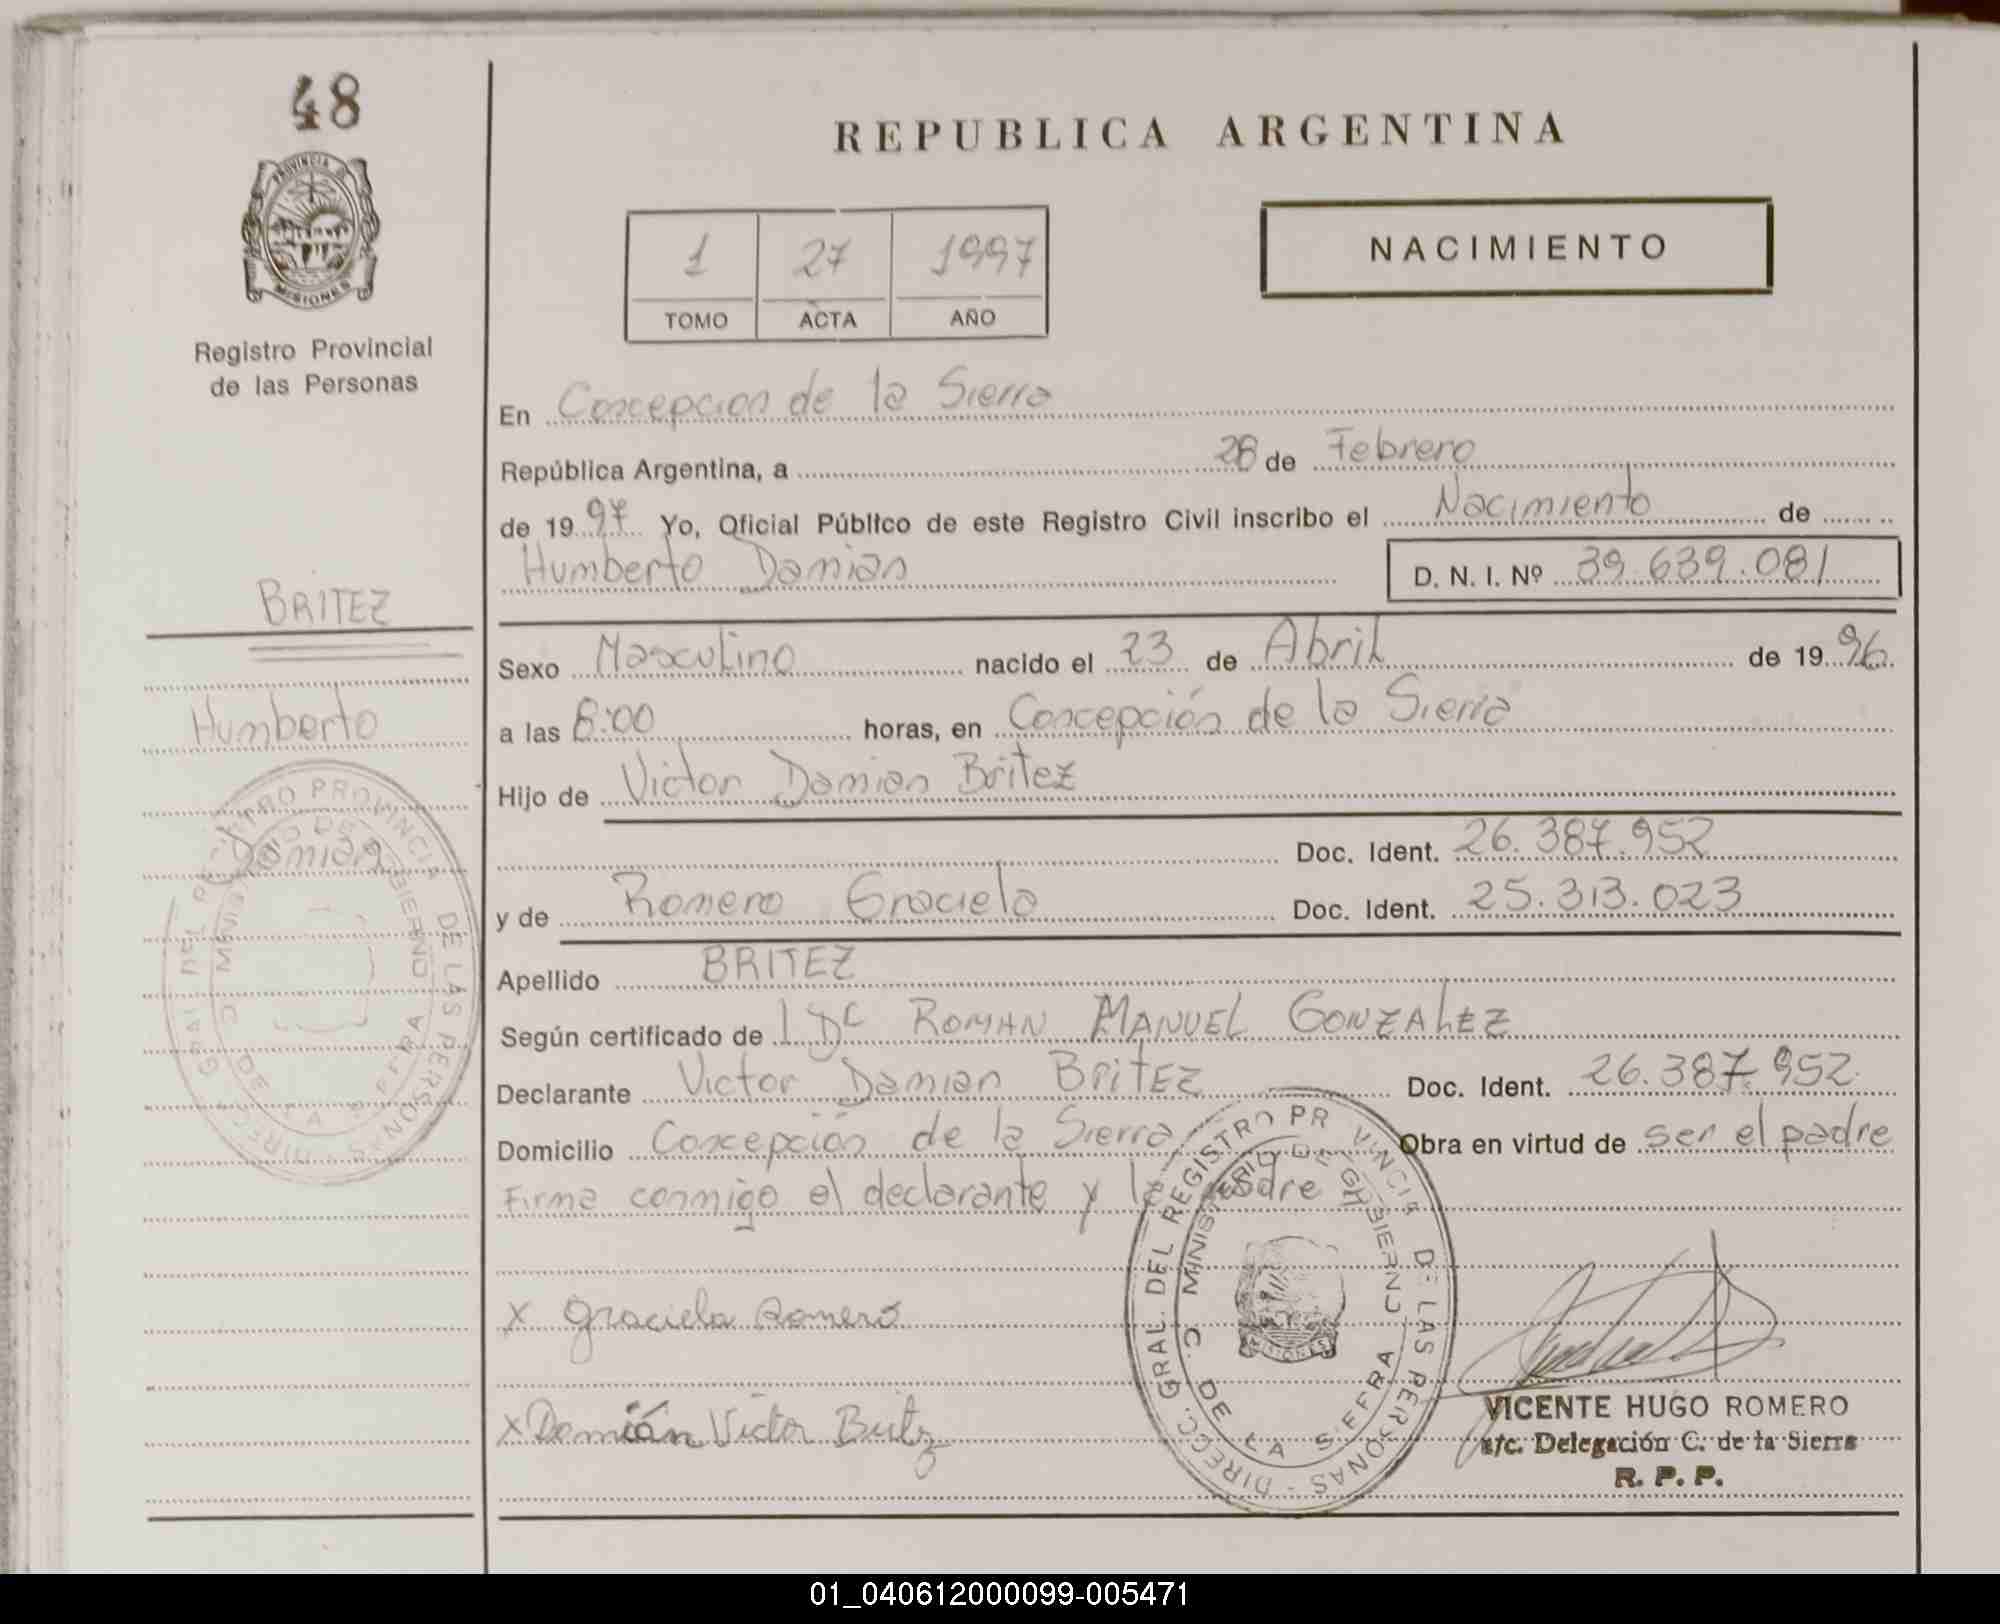 48
PROVINCIA DE
MISIONES
Registro Provincial
de las Personas
BRITEZ
Humberto
Damián
DIRECC. GRAL. DEL REGISTRO PROVINCIAL DE LAS PERSONAS
MINISTERIO DE GOBIERNO
C. DE LA SIERRA
REPUBLICA ARGENTINA
1 27 1997
TOMO ACTA AÑO
NACIMIENTO
En Concepcion de la Sierra
República Argentina, a 28 de Febrero
de 1997 Yo, Oficial Público de este Registro Civil inscribo el Nacimiento de
Humberto Damián D. N. I. Nº 39.639.081
Sexo Masculino nacido el 23 de Abril de 1996
a las 8:00 horas, en Concepción de la Sierra
Hijo de Victor Damian Britez
Doc. Ident. 26.387.952
y de Romero Graciela Doc. Ident. 25.313.023
Apellido BRITEZ
Según certificado de ROMAN MANUEL GONZALEZ
Declarante Victor Damian BRITEZ Doc. Ident. 26.387.952
Domicilio Concepción de la Sierra Obra en virtud de ser el padre
Firma conmigo el declarante y la madre
X Graciela Romero
X Damián Victor Britz
DIRECC. GRAL. DEL REGISTRO PROVINCIA DE LAS PERSONAS
MINISTERIO DE GOBIERNO
C. DE LA SIERRA
MISIONES
VICENTE HUGO ROMERO
a/c. Delegación C. de la Sierra
R. P. P.
01_040612000099-005471